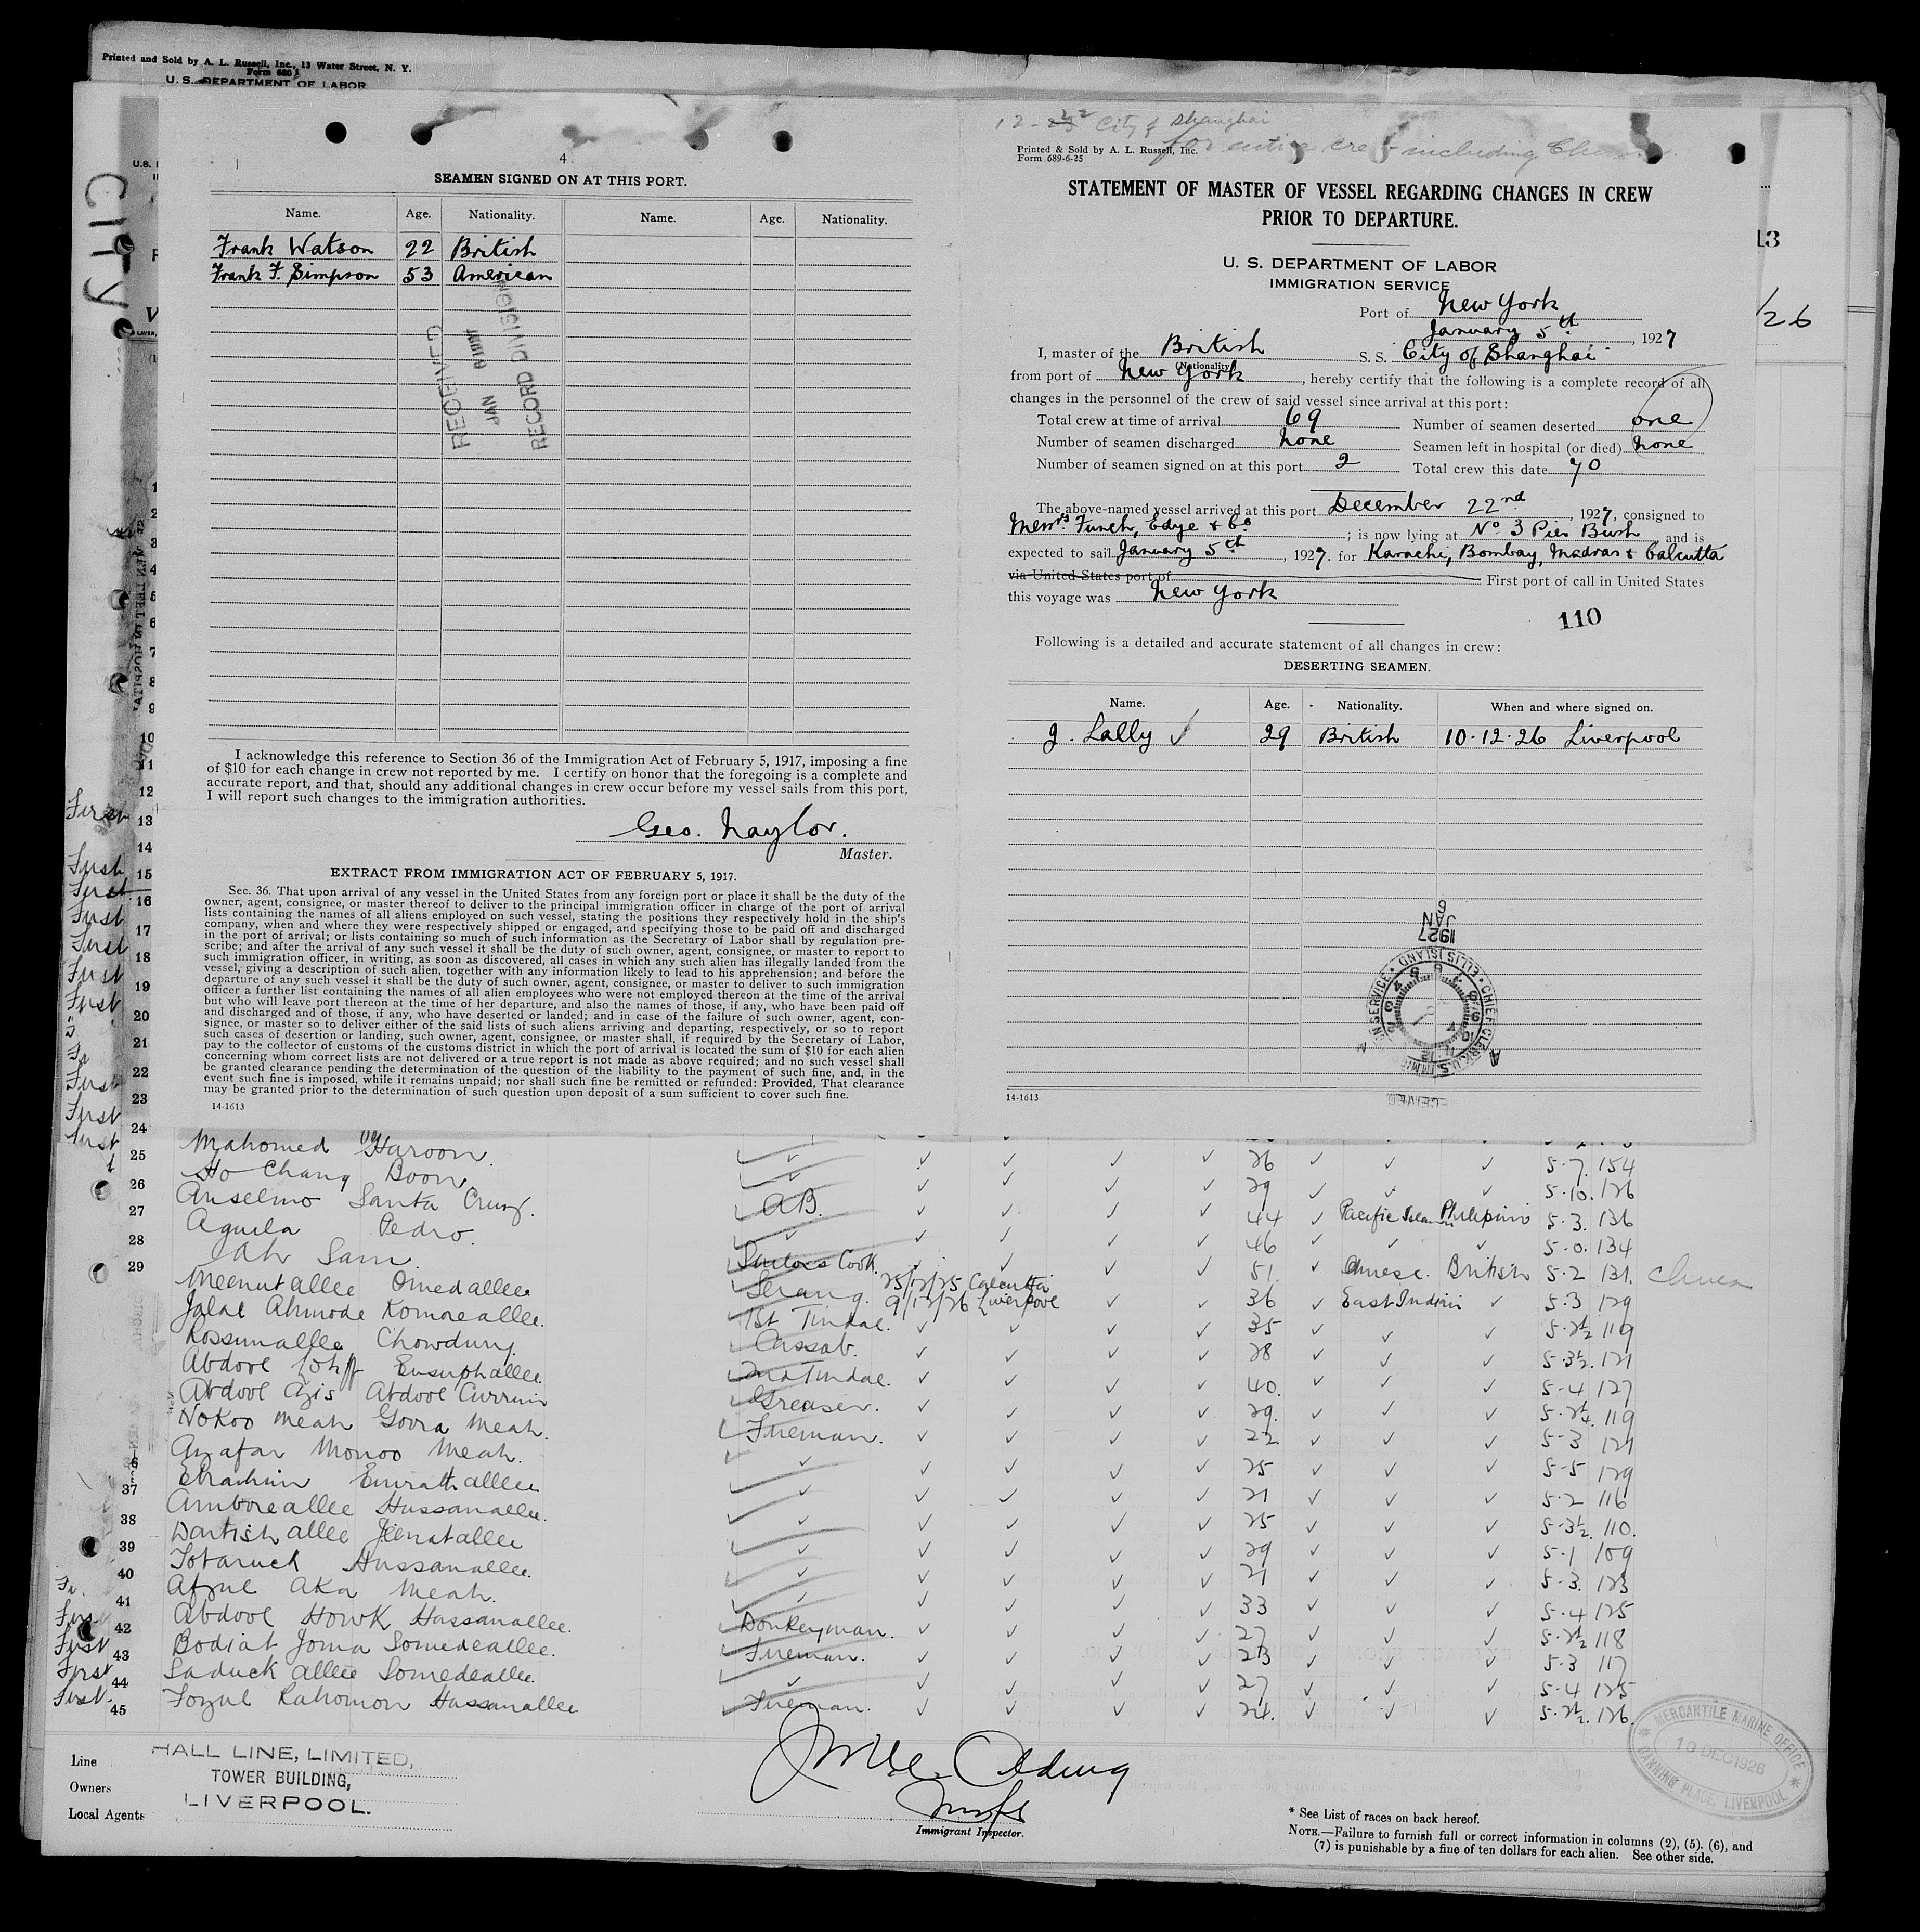 Printed and Sold by A. L. Russell, Inc., 13 Water Street, N. Y.
Form 680
U. S. DEPARTMENT OF LABOR
City
4
SEAMEN SIGNED ON AT THIS PORT.
Name. Age. Nationality. Name. Age. Nationality.
Frank Watson 22 British
Frank F. Simpson 53 American
RECEIVED
JAN
RECORD DIVISION
I acknowledge this reference to Section 36 of the Immigration Act of February 5, 1917, imposing a fine
of $10 for each change in crew not reported by me. I certify on honor that the foregoing is a complete and
accurate report, and that, should any additional changes in crew occur before my vessel sails from this port,
I will report such changes to the immigration authorities.
Geo. Naylor.
Master.
EXTRACT FROM IMMIGRATION ACT OF FEBRUARY 5, 1917.
Sec. 36. That upon arrival of any vessel in the United States from any foreign port or place it shall be the duty of the
owner, agent, consignee, or master thereof to deliver to the principal immigration officer in charge of the port of arrival
lists containing the names of all aliens employed on such vessel, stating the positions they respectively hold in the ship's
company, when and where they were respectively shipped or engaged, and specifying those to be paid off and discharged
in the port of arrival; or lists containing so much of such information as the Secretary of Labor shall by regulation pre-
scribe; and after the arrival of any such vessel it shall be the duty of such owner, agent, consignee, or master to report to
such immigration officer, in writing, as soon as discovered, all cases in which any such alien has illegally landed from the
vessel, giving a description of such alien, together with any information likely to lead to his apprehension; and before the
departure of any such vessel it shall be the duty of such owner, agent, consignee, or master to deliver to such immigration
officer a further list containing the names of all alien employees who were not employed thereon at the time of the arrival
but who will leave port thereon at the time of her departure, and also the names of those, if any, who have been paid off
and discharged and of those, if any, who have deserted or landed; and in case of the failure of such owner, agent, con-
signee, or master so to deliver either of the said lists of such aliens arriving and departing, respectively, or so to report
such cases of desertion or landing, such owner, agent, consignee, or master shall, if required by the Secretary of Labor,
pay to the collector of customs of the customs district in which the port of arrival is located the sum of $10 for each alien
concerning whom correct lists are not delivered or a true report is not made as above required; and no such vessel shall
be granted clearance pending the determination of the question of the liability to the payment of such fine, and, in the
event such fine is imposed, while it remains unpaid; nor shall such fine be remitted or refunded: Provided, That clearance
may be granted prior to the determination of such question upon deposit of a sum sufficient to cover such fine.
14-1613
City of Shanghai
for entire crew including
Printed & Sold by A. L. Russell, Inc.
Form 689-6-25
STATEMENT OF MASTER OF VESSEL REGARDING CHANGES IN CREW
PRIOR TO DEPARTURE.
U. S. DEPARTMENT OF LABOR
IMMIGRATION SERVICE
Port of New York
January 5th, 1927
I, master of the British S. S. City of Shanghai
(Nationality)
from port of New York, hereby certify that the following is a complete record of all
changes in the personnel of the crew of said vessel since arrival at this port:
Total crew at time of arrival 69 Number of seamen deserted one
Number of seamen discharged None Seamen left in hospital (or died) None
Number of seamen signed on at this port 2 Total crew this date 70
The above-named vessel arrived at this port December 22nd, 1927, consigned to
Messrs. Funch, Edye & Co; is now lying at No. 3 Pier Bush, and is
expected to sail January 5th, 1927. for Karachi, Bombay, Madras & Calcutta
via United States port of First port of call in United States
this voyage was New York
110
Following is a detailed and accurate statement of all changes in crew:
DESERTING SEAMEN.
Name. Age. Nationality. When and where signed on.
J. Lally 29 British 10-12-26 Liverpool
1927
JAN
6
CHIEF CLERK U.S. IMMIGRATION SERVICE ELLIS ISLAND
14-1613
13
/26
25 Mahomed Haroon. 26 5.7. 154
26 Ho Chang Boon 29 5.10. 126
27 Anselmo Santa Cruz. A.B. 44 Pacific Islan Philipini 5.3. 136
28 Aguila Pedro. 46 5.0. 134
29 Iah Sam. Sailors Cook. 51. Chinese. British 5.2 131. China
Meenutallee Omedallee Serang. 25/12/25 Calcutta 36 East Indian 5.3 129
Jalal Ahmode Komoreallee. 1st Tindal. 9/12/26 Liverpool 35 5.2½ 119
Rossumallee Chowdury. Cassab. 28 5.3½. 121
Abdool Eusuphallee 2nd Tindal. 40. 5.4 127
Abdool Azis Abdool Currim Greaser. 29. 5.2¼. 119
Nokoo Meah Goora Meah. Fireman. 22 5.3 121
Azafar Monoo Meah. 25 5.5 129
37 Ebrahim Emrathallee 21 5.2 116
38 Amboreallee Hussanallee. 25 5.3½. 110.
39 Dantish allee Jeenatallee 29 5.1 109
40 Totaruck Hussanallee. 21 5.3. 123
41 Afzul Aka Meah. 33 5.4 125
42 Abdool Howk Hussanallee. Donkeyman. 27 5.2½ 118
First 43 Bodiat Joma Somedeallee. Fireman. 23 5.3 117
First 44 Saduck allee Somedeallee. 27 5.4 125
First. 45 Fozul Rahomon Hussanallee Fireman. 24. 5.2½. 126.
Line HALL LINE, LIMITED,
Owners TOWER BUILDING,
Local Agents LIVERPOOL.
Immigrant Inspector.
MERCANTILE MARINE OFFICE
10 DEC 1926
CANNING PLACE, LIVERPOOL
* See List of races on back hereof.
NOTE.—Failure to furnish full or correct information in columns (2), (5). (6), and
(7) is punishable by a fine of ten dollars for each alien. See other side.